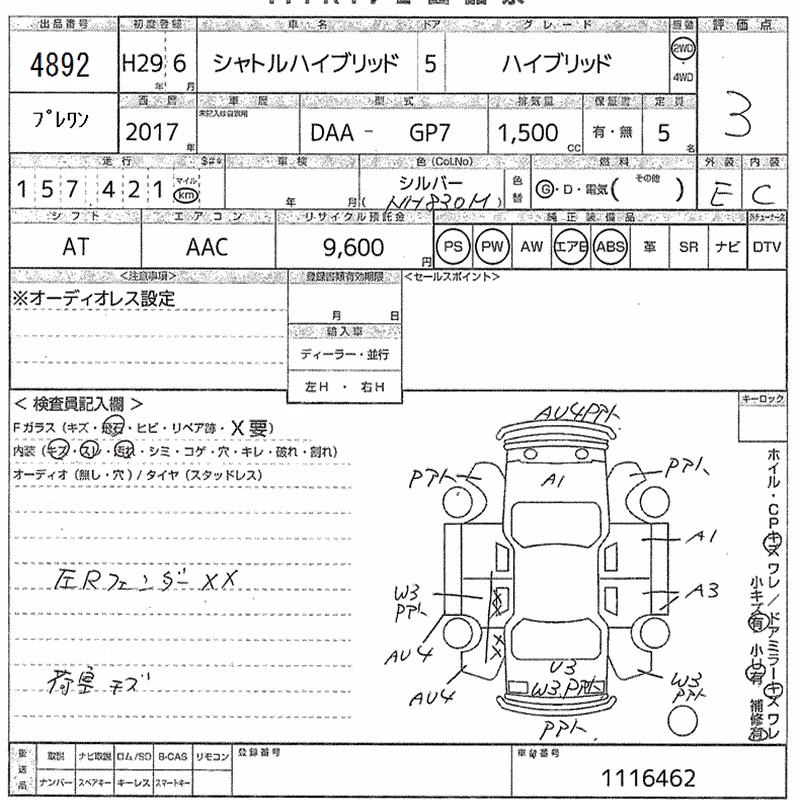 出品番号 初度登録 車名 ドア グレード 駆動 評価点
4892 H29 6 シャトルハイブリッド 5 ハイブリッド 2WD
年 月 4WD
プレワン 西暦 車歴 型式 排気量 保証書 定員 3
未記入は自家用
2017 年 DAA - GP7 1,500 CC 有・無 5 名
走行 $#* 車検 色(Col.No) 燃料 外装 内装
157421 マイル km 年 月 シルバー 色替 G・D・電気( その他 ) E C
( NH830M )
シフト エアコン リサイクル預託金 純正装備品
AT AAC 9,600 円 PS PW AW エアB ABS 革 SR ナビ DTV
<注意事項> 登録書類有効期限 <セールスポイント>
※オーディオレス設定
月 日
輸入車
ディーラー・並行
左H ・ 右H
キーロック
< 検査員記入欄 >
Fガラス (キズ・飛石・ヒビ・リペア跡・X要)
内装 (キズ・スレ・汚れ・シミ・コゲ・穴・キレ・破れ・割れ)
オーディオ (無し・穴) / タイヤ (スタッドレス)
左Rフェンダー XX
荷室 キズ
AU4PTト
Pアト Pアト
A1
A1
W3 A3
Pアト
XX
XX
AU4 U3 W3
AU4 W3.Pアト Pアト
Pアト
ホイル・CPキズワレ/ドアミラーキズワレ
小キズ有 小U有 補修有
後送品 取説 ナビ取説 ロム/SD B-CAS リモコン 登録番号 車台番号
ナンバー スペアキー キーレス スマートキー 1116462